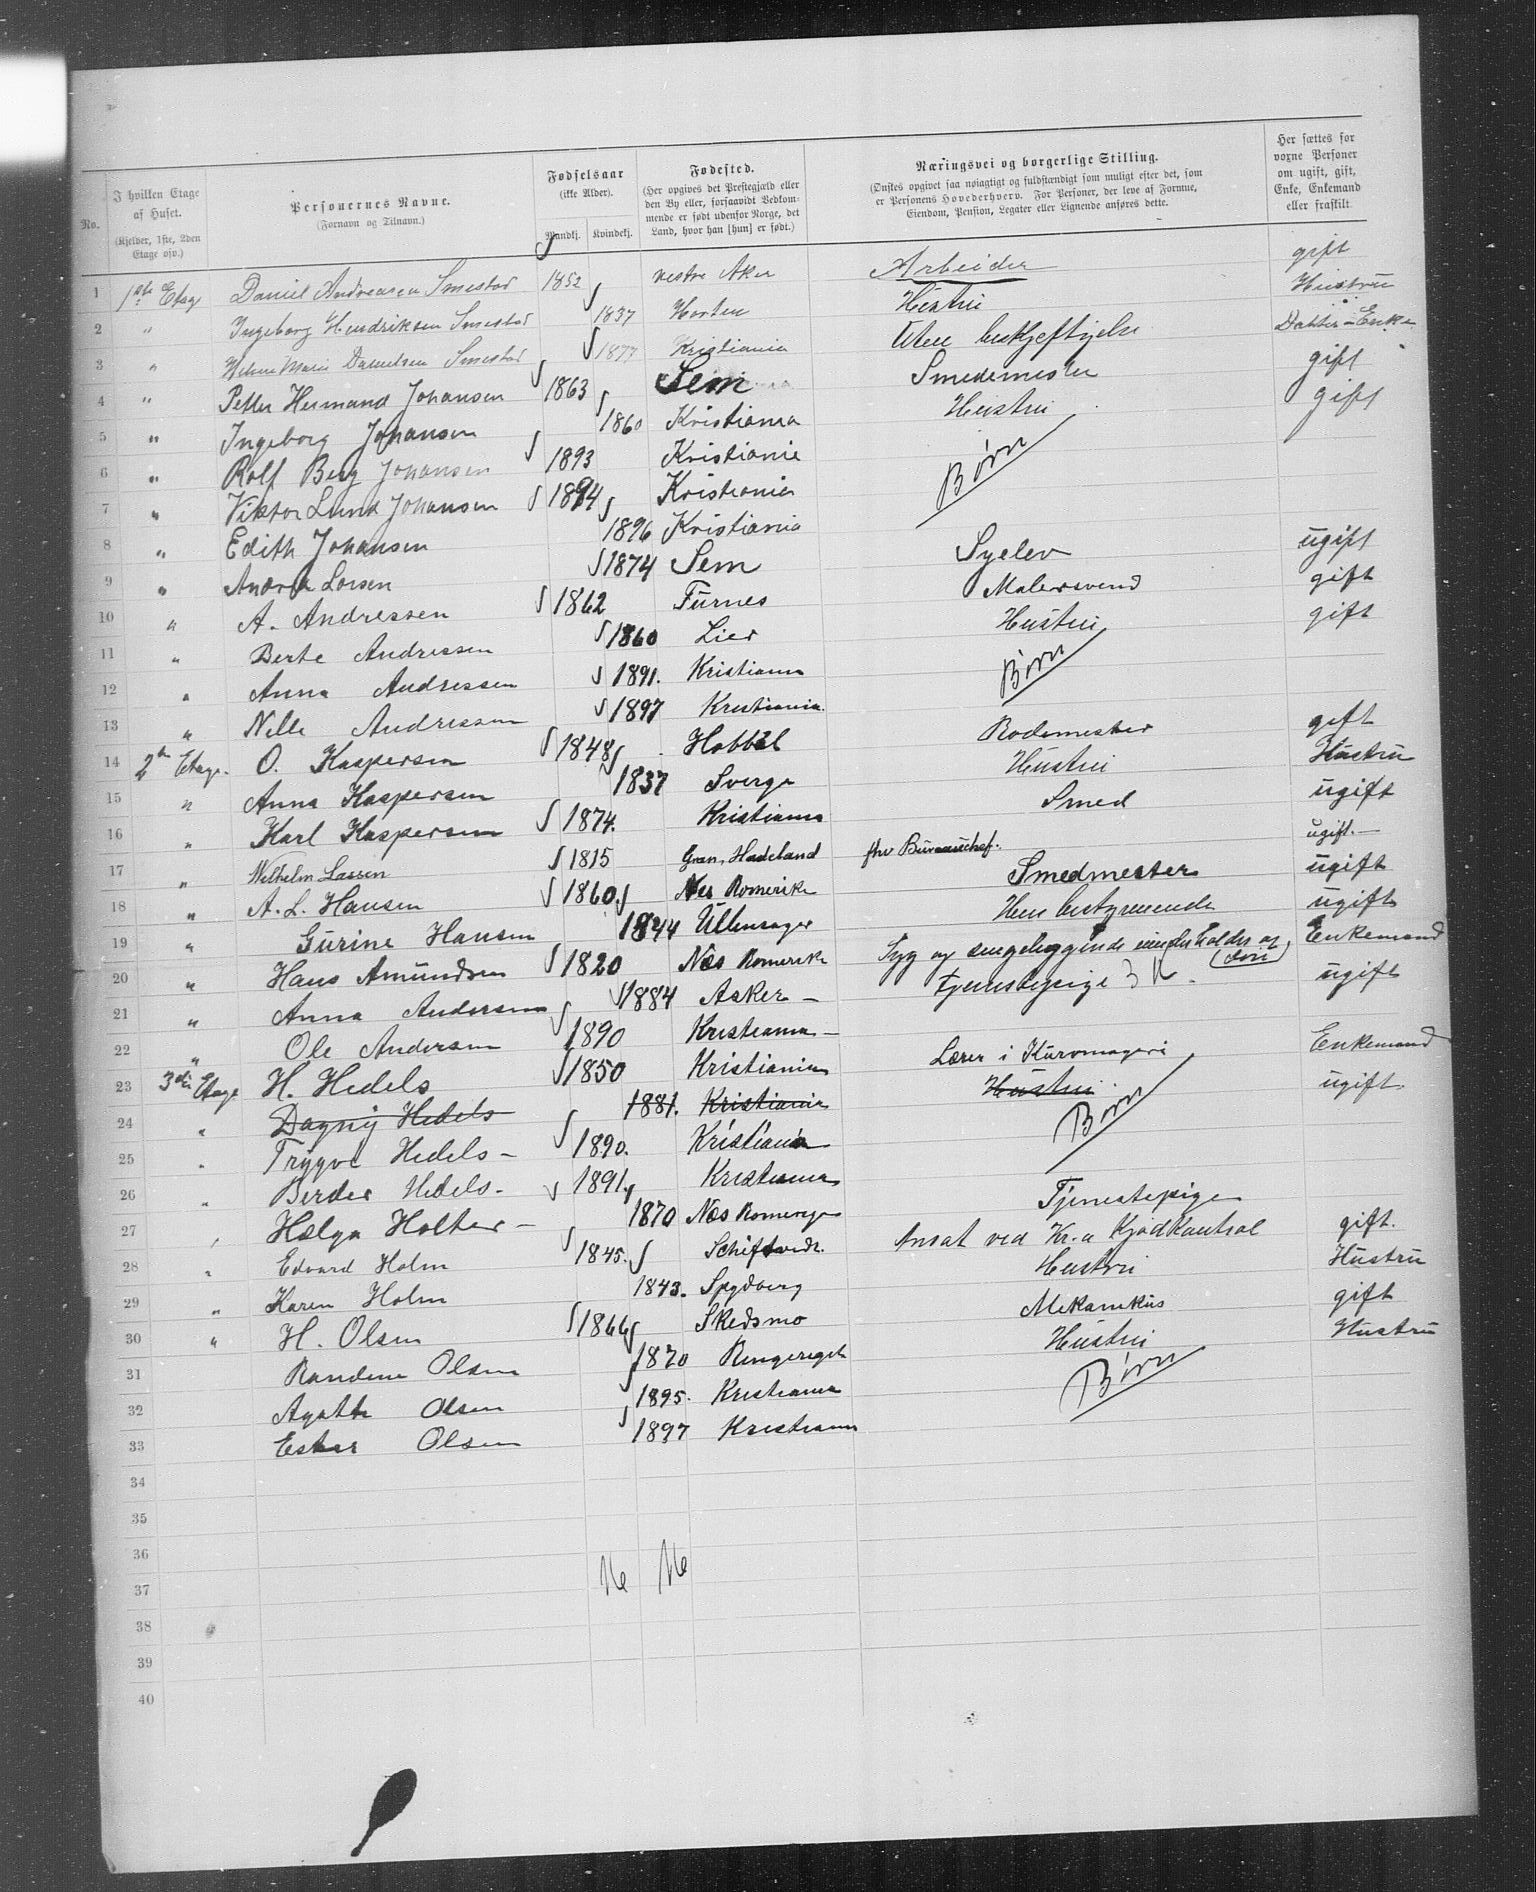 No. | I hvilken Etage af Huset. (Kjelder, 1ste, 2den Etage osv.) | Personernes Navne. (Fornavn og Tilnavn.) | Fødselsaar (ikke Alder). Mandkj. Kvindekj. | Fødested. (Her opgives det Prestegjæld eller den By eller, forsaavidt Vedkommende er født udenfor Norge, det Land, hvor han [hun] er født.) | Næringsvei og borgerlige Stilling. (Ønstes opgivet saa nøiagtigt og fuldstændigt som muligt efter det, som er Personens Hovederhverv. For Personer, der leve af Formue, Eiendom, Pension, Legater eller Lignende anføres dette. | Her sættes for voxne Personer om ugift, gift, Enke, Enkemand eller fraskilt
1 1ste Etage Daniel Andreasen Smestad 1852 vestre Aker Arbeider gift
2 " Ingeborg Hendriksen Smestad 1837 Horten Hustru Hustru
3 " Marie Danielsen Smestad 1877 Kristiania Uten beskjeftigelse Datter - Enke
4 " Petter Hermand Johansen 1863 Sem Smedemester gift
5 " Ingeborg Johansen 1860 Kristiania Hustru gift
6 " Rolf Berg Johansen 1893 Kristiania Børn
7 " Viktor Lund Johansen 1894 Kristiania
8 " Edith Johansen 1896 Kristiania
9 " Andrea Lorsen 1874 Sem Syelev ugift
10 " A. Andressen 1862 Furnes Malersvend gift
11 " Berte Andressen 1860 Lier Hustru gift
12 " Anna Andressen 1891. Kristiania Børn
13 " Nelle Andressen 1897 Kristiania.
14 2den Etage. O. Kaspersen 1848 Hobbøl Rodemester gift
15 " Anna Kaspersen 1837 Sverge Hustru Hustru
16 " Karl Kaspersen 1874. Kristiania Smed ugift
17 " Wilhelm Lassen 1815 Gran, Hadeland fhv Bureauchef. ugift. -
18 " A. L. Hansen 1860 Nes Romerike Smedmester ugift
19 " Gurine Hansen 1844 Ullensager Hus bestyrende ugift
20 " Hans Amundsen 1820 Næs Romerike Syg og sengeliggende underholdes af (søn) Enkemand
21 " Anna Andersen 1884 Asker - Tjenestepige ugift
22 " Ole Andersen 1890 Kristiania -
23 3die Etage H. Hedels 1850 Kristiania Lærer i Kurvmageri Enkemand
24 " Dagny Hedels 1881. Kristiania Hustru ugift.
25 " Trygve Hedels - 1890. Kristiania Børn
26 " Birder Hedels - 1891. Kristiania
27 " Hælga Holter - 1870 Næs Romerige Tjenestepige
28 " Edvard Holm 1845. Schiftvedt. Ansat ved Kr.a Kjødkontrol gift.
29 " Karen Holm 1843. Spydberg Hustru Hustru
30 " H. Olsen 1866 Skedsmo Mekanikus gift
31 Randine Olsen 1870 Ringeriget Hustru Hustru
32 Agathe Olsen 1895. Kristiania Børn
33 Ester Olsen 1897 Kristiania
34
35
36
37
38
39
40